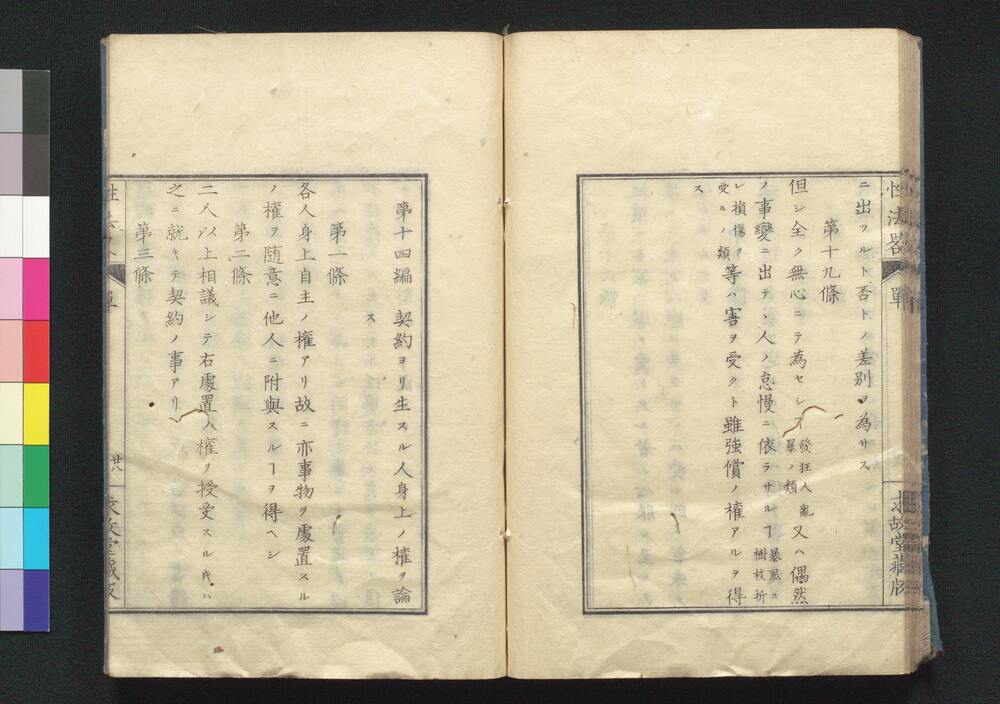 性法畧
單
求故堂藏版
ニ出ツルト否トノ差別ヲ為サス
第十九條
但シ全ク無心ニテ為セシヿ發狂人亂暴ノ類又ハ偶然
ノ事變ニ出テ、人ノ怠慢ニ依ラサルヿ暴風ニ樹枝折
レ損傷ヲ受ルノ類等ハ害ヲ受クト雖強償ノ權アルヲ得
ス
第十四編 契約ヨリ生スル人身上ノ權ヲ論
ス
第一條
各人身上自主ノ權アリ故ニ亦事物ヲ處置スル
ノ權ヲ隨意ニ他人ニ附與スルヿヲ得ヘシ
第二條
二人以上相議シテ右處置ノ權ヲ授受スル𪜈ハ
之ニ就キテ契約ノ事アリ
第三條
單
廿八